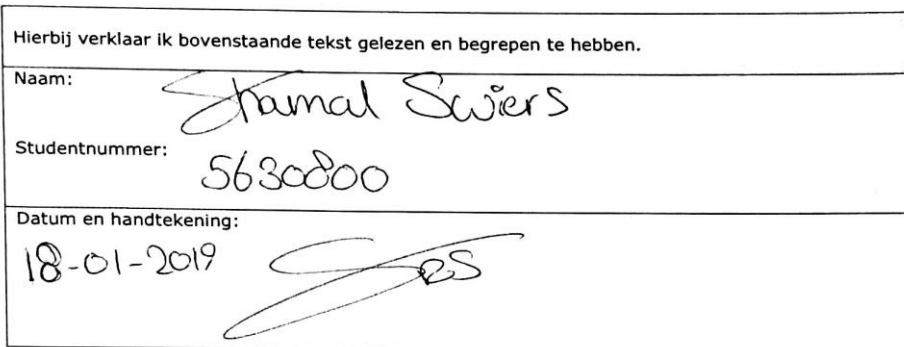 Hierbij verklaar ik bovenstaande tekst gelezen en begrepen te hebben.
Naam:
Shamal Swiers
Studentnummer:
5630800
Datum en handtekening:
18-01-2019